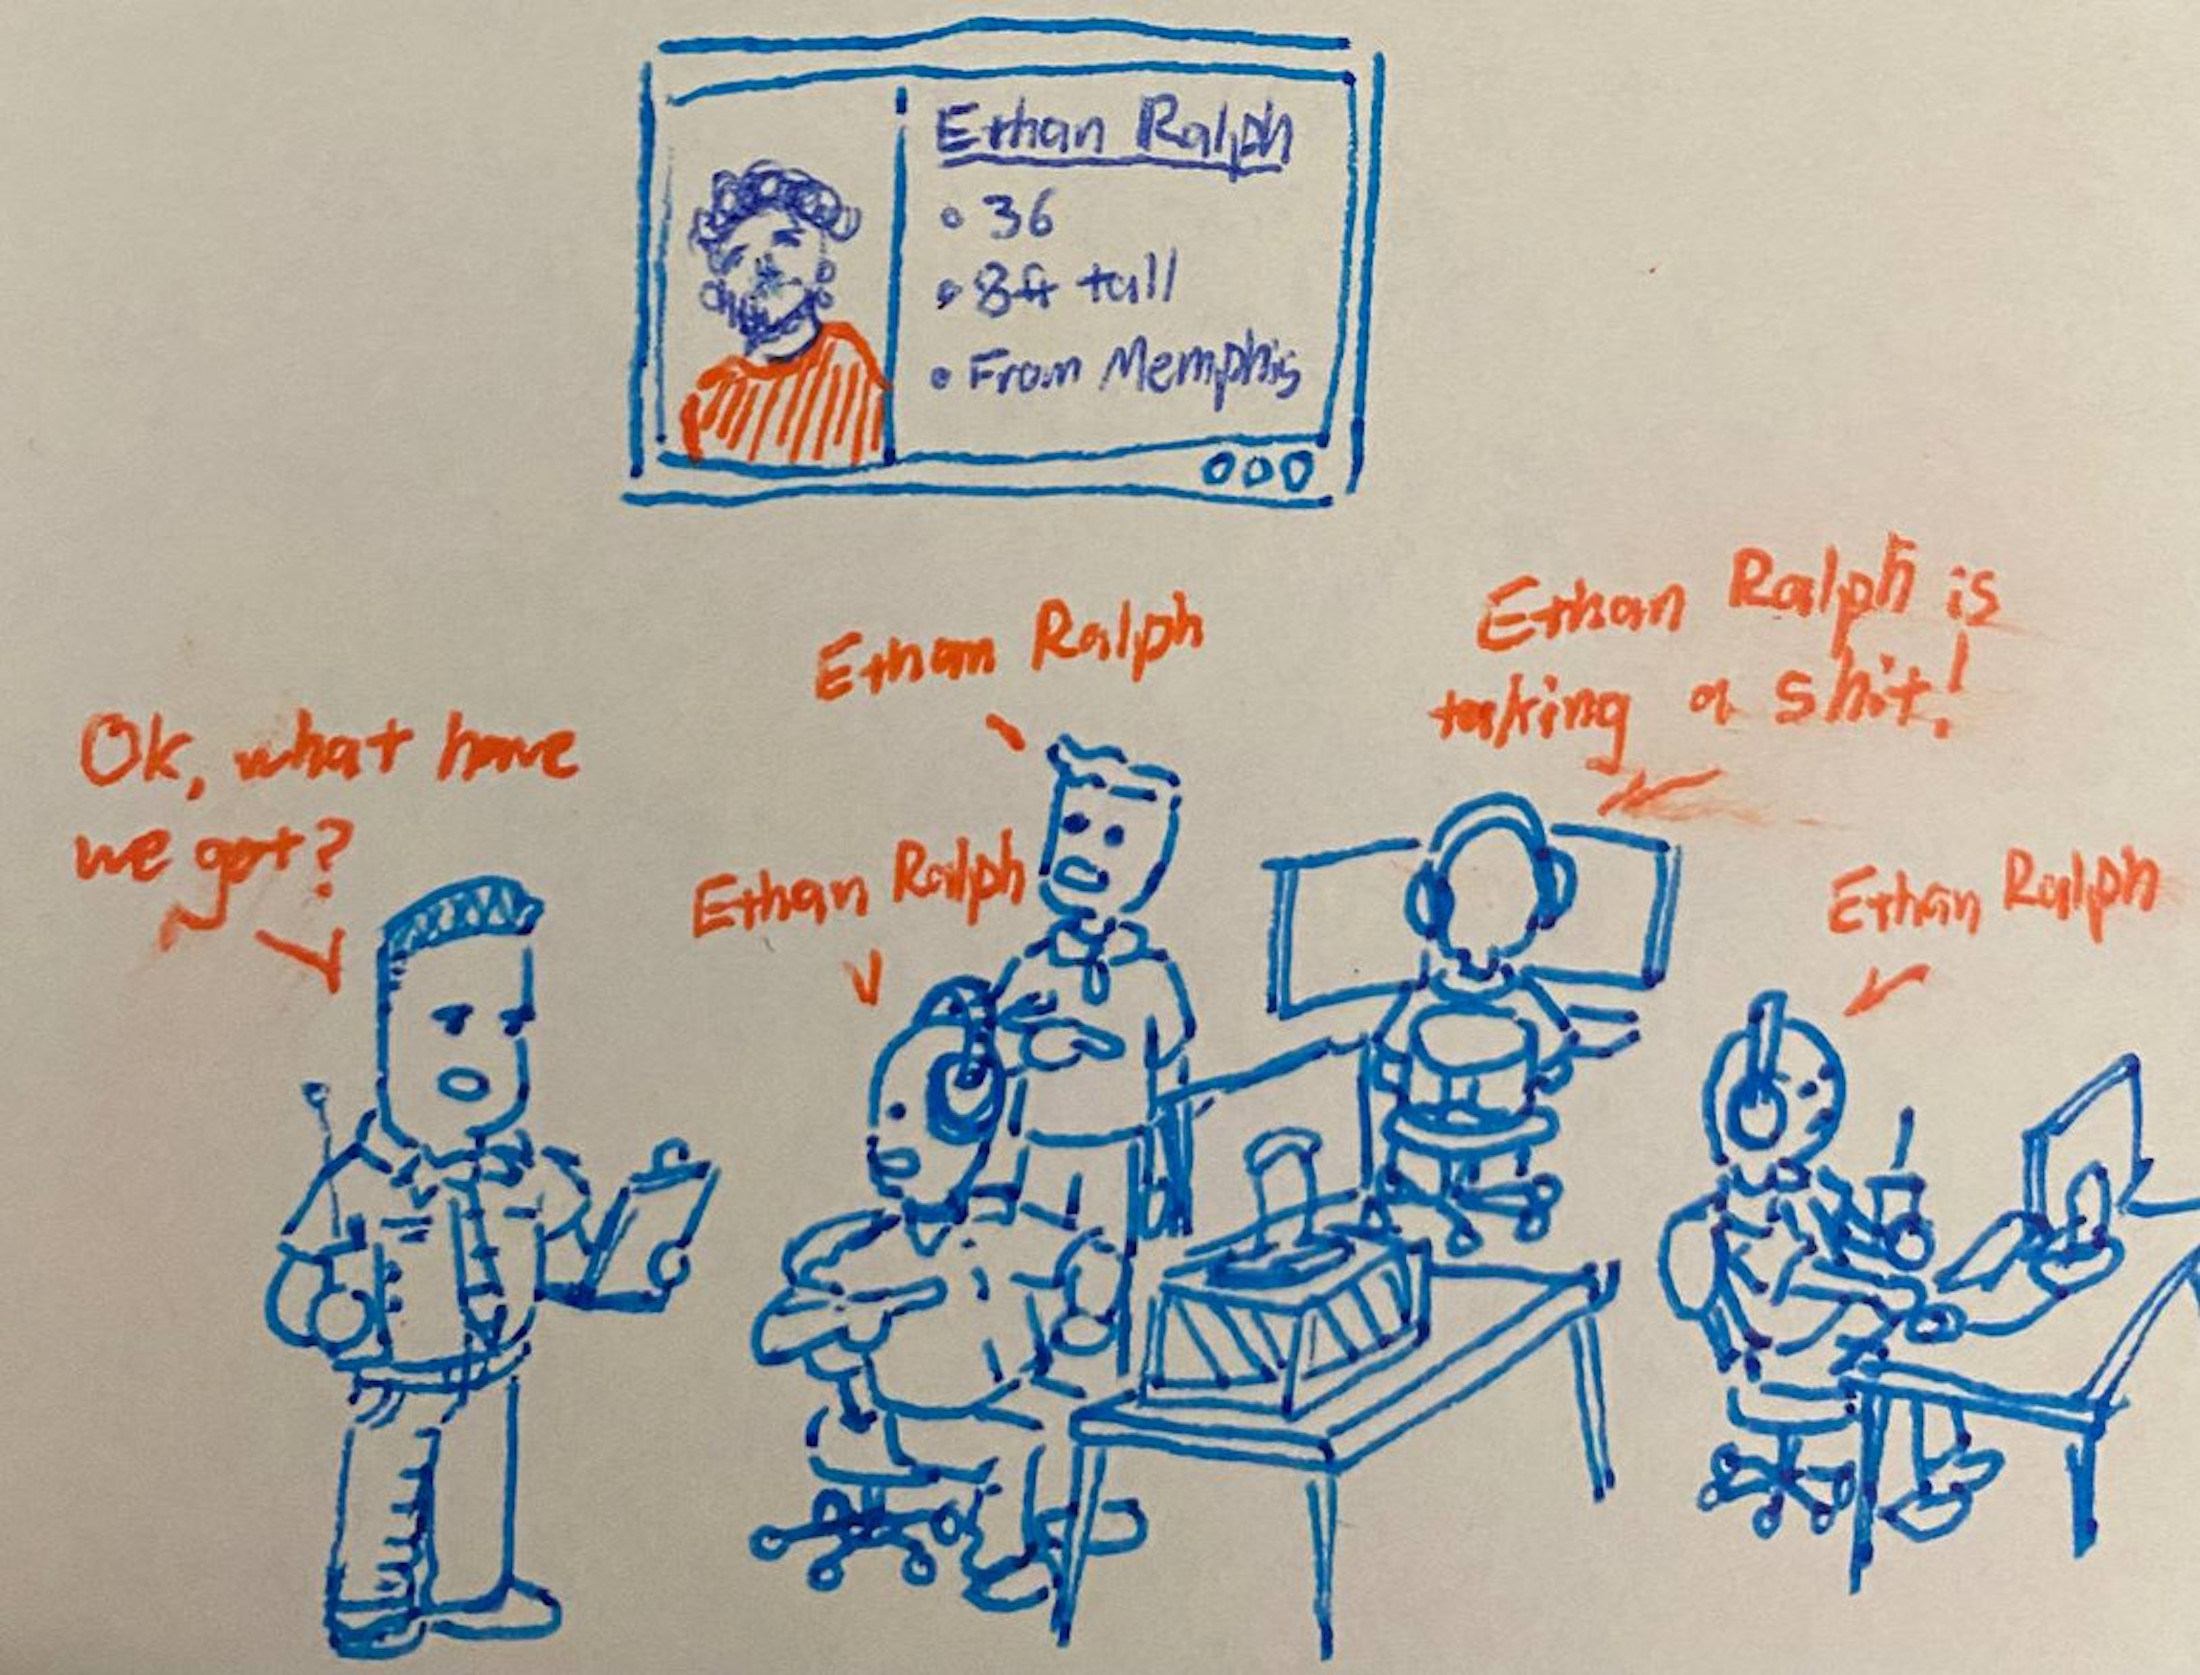 Ethan Ralph
• 36
• 8ft tall
• From Memphis
Ok, what have
we got?
Ethan Ralph
Ethan Ralph
Ethan Ralph is
taking a shit!
Ethan Ralph